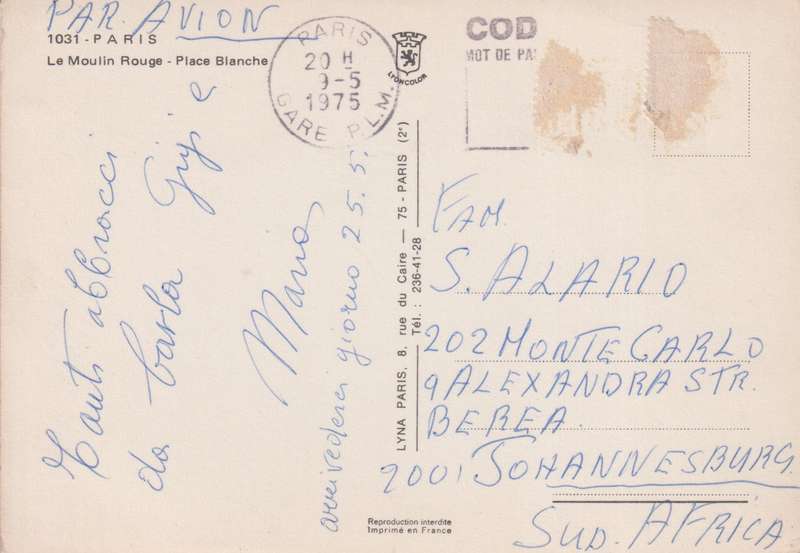 PAR AVION
1031 - PARIS
Le Moulin Rouge - Place Blanche
PARIS
20 H
9-5
1975
GARE P.L.M.
LYONCOLOR
COD
MOT DE PA
Tanti abbracci
da Carla Gigi e
Mario
arrivederci giorno 25.5.
LYNA PARIS, 8, rue du Caire — 75 - PARIS (2e)
Tél. : 236-41-28
FAM.
S. ALARIO
202 MONTE CARLO
9 ALEXANDRA STR.
BEREA
2001 JOHANNESBURG
SUD. AFRICA
Reproduction interdite
Imprimé en France